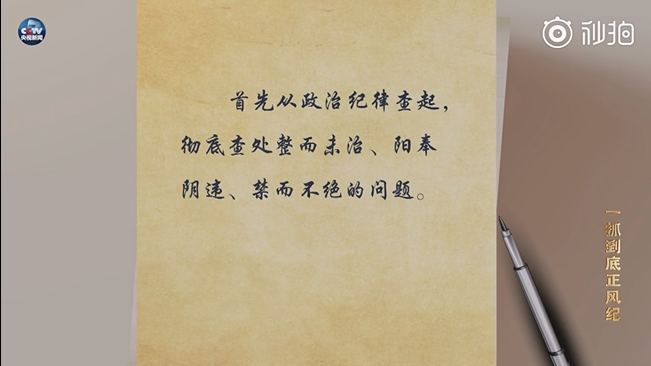 CCTV
央视新闻
秒拍
首先从政治纪律查起，
彻底查处整而未治、阳奉
阴违、禁而不绝的问题。
一抓到底正风纪